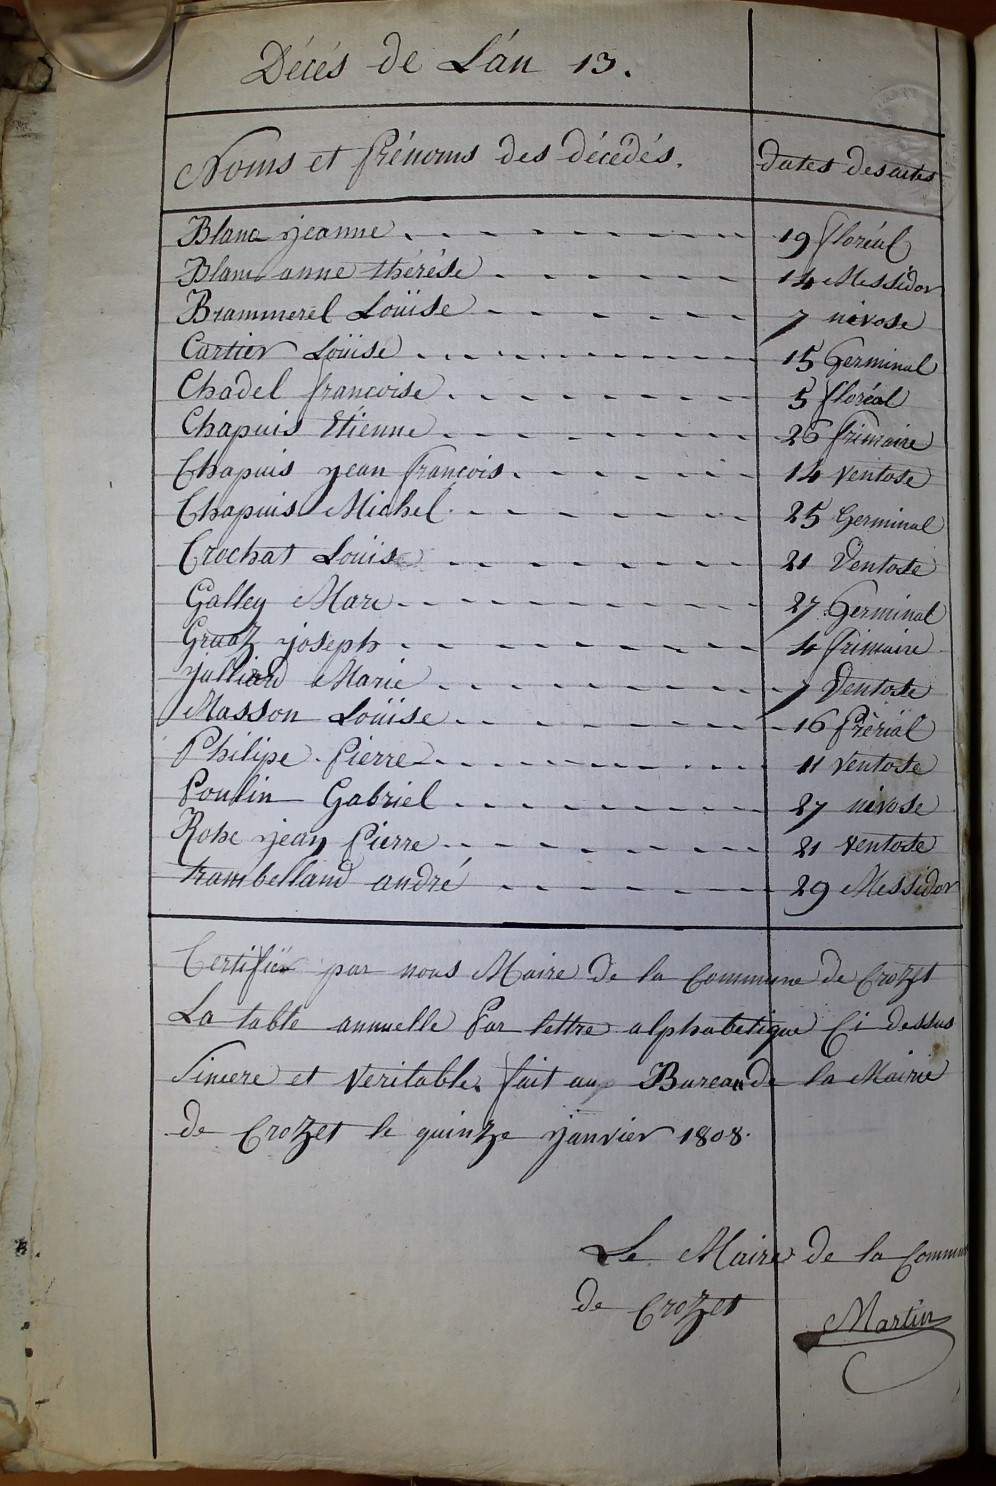 Décés de L'án 13.
Noms et Prénoms des décédés. dates des actes
Blanc jeanne 19 floréal
Blanc anne thérése 14 Messidor
Brammerel Louïse 7 nivose
Cartier Louïse 15 Germinal
Chadel francoise 5 floréal
Chapuis Etienne 26 frimaire
Chapuis jean francois 14 ventose
Chapuis Michel 25 Germinal
Crochat Louïse 21 Ventose
Galley Marc 27 Germinal
Gruaz joseph 4 frimaire
julliard Marie 7 Ventose
Masson Louïse 16 Prérial
Philipe Pierre 11 ventose
Poulin Gabriel 27 nivose
Robe jean Pierre 21 ventose
trambelland andré 29 Messidor
Certifié par nous Maire de la Commune de Crozet
La table annuelle Par lettre alphabetique Ci dessus
Sincere et Veritable. fait au Bureau de la Mairie
de Crozet le quinze janvier 1808.
Le Maire de la Commune
de Crozet
Martin